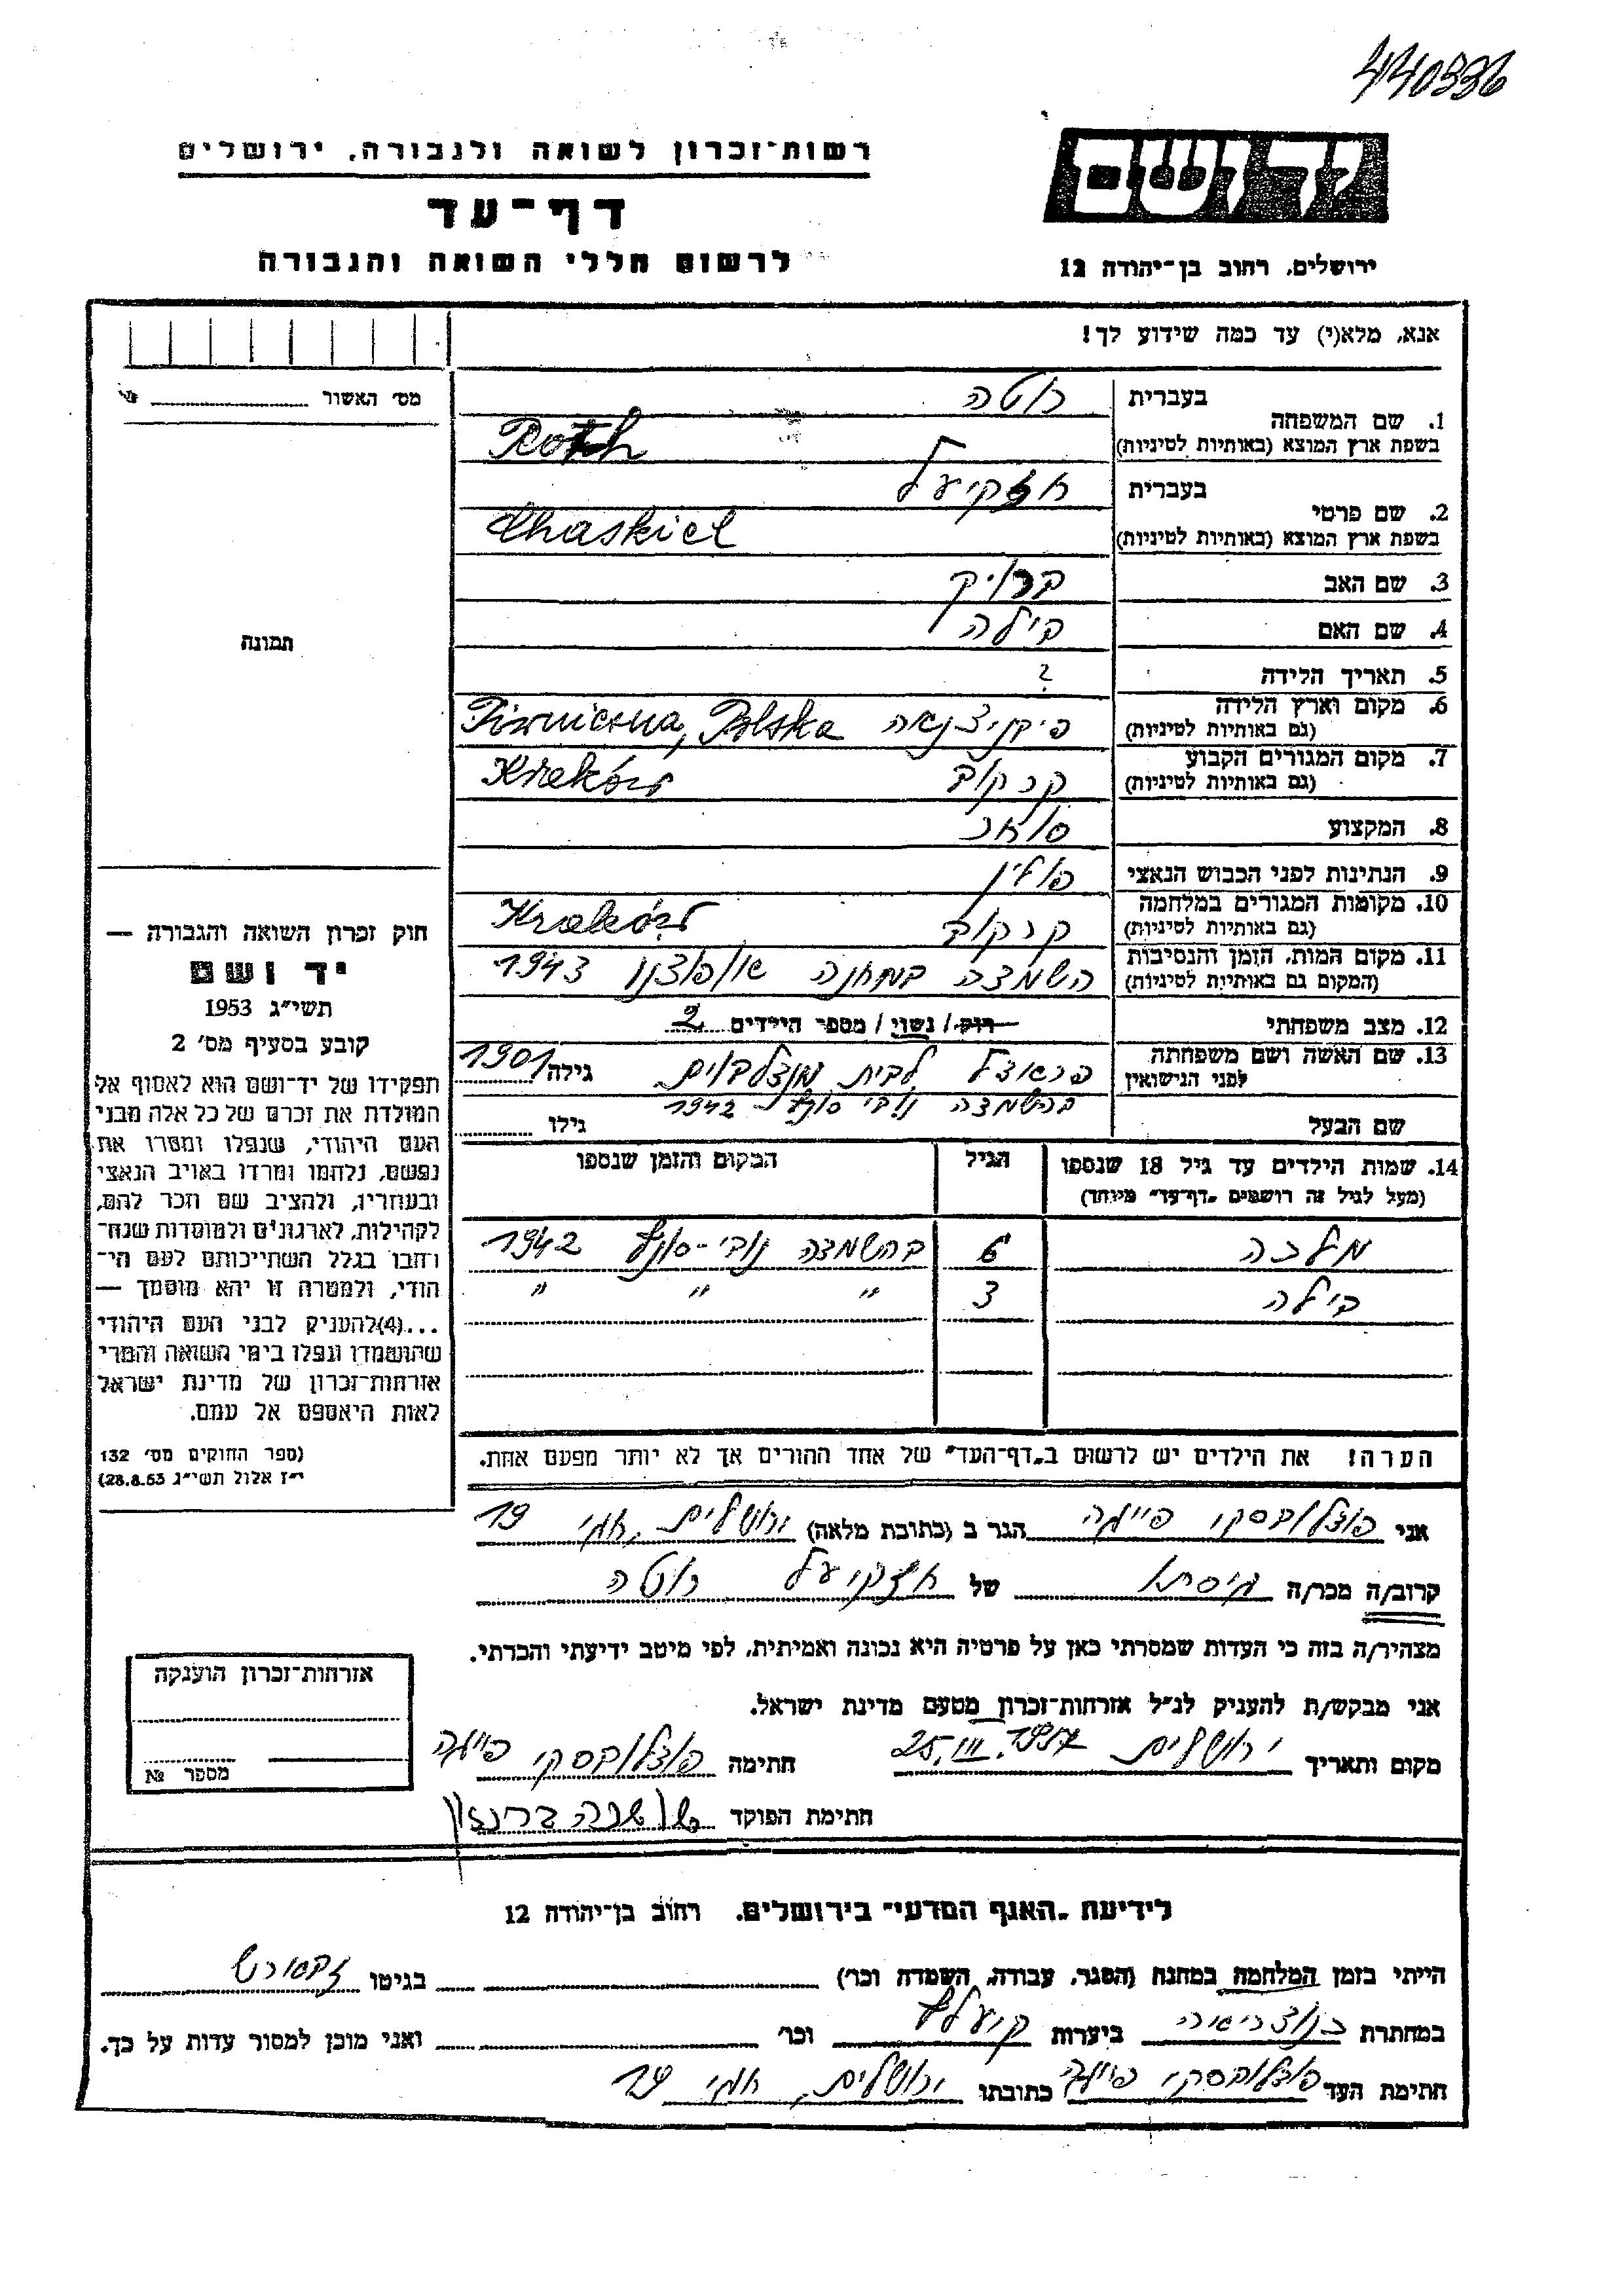 440336
יד ושם
ירושלים, רחוב בן־יהודה 12
רשות־זכרון לשואה ולגבורה, ירושלים
דף־עד
לרשום חללי השואה והגבורה
אנא, מלא(י) עד כמה שידוע לך!
מס׳ האשור
1. שם המשפחה
בעברית רוטה
בשפת ארץ המוצא (באותיות לטיניות) Roth
2. שם פרטי
בעברית חזקיעל
בשפת ארץ המוצא (באותיות לטיניות) Chaskiel
3. שם האב
4. שם האם בילה
5. תאריך הלידה ?
6. מקום וארץ הלידה
(גם באותיות לטיניות) Piwniczna, Polska
7. מקום המגורים הקבוע
(גם באותיות לטיניות) קרקוב Kraków
8. המקצוע סוחר
9. הנתינות לפני הכבוש הנאצי פולין
10. מקומות המגורים במלחמה
(גם באותיות לטיניות) קרקוב Kraków
11. מקום המות, הזמן והנסיבות
(המקום גם באותיות לטיניות) השמצה במחנה 1943
12. מצב משפחתי רוק / נשוי / מספר הילדים 2
13. שם האשה ושם משפחתה
לפני הנישואין לבית מנצלבוים גילה 1901
בהשמצה נובי סונץ 1942
שם הבעל גילו
14. שמות הילדים עד גיל 18 שנספו
(מעל לגיל זה רושמים „דף־עד״ מיוחד)
הגיל
המקום והזמן שנספו
מלכה 6 בהשמצה נובי-סונץ 1942
בילה 3 " " "
הערה! את הילדים יש לרשום ב„דף־העד״ של אחד ההורים אך לא יותר מפעם אחת.
תמונה
חוק זכרון השואה והגבורה —
יד ושם
תשי״ג 1953
קובע בסעיף מס׳ 2
תפקידו של יד־ושם הוא לאסוף אל
המולדת את זכרם של כל אלה מבני
העם היהודי, שנפלו ומסרו את
נפשם, נלחמו ומרדו באויב הנאצי
ובעוזריו, ולהציב שם וזכר להם,
לקהילות, לארגונים ולמוסדות שנח־
רחבו בגלל השתייכותם לעם הי־
הודי, ולמטרה זו יהא מוסמך —
...(4)להעניק לבני העם היהודי
שהושמדו ונפלו בימי השואה והמרי
אזרחות־זכרון של מדינת ישראל
לאות היאספם אל עמם.
(ספר החוקים מס׳ 132
י״ז אלול תשי״ג 28.8.53)
אני פוצלובסקי פייגה הגר ב (כתובת מלאה) ירושלים, 19
קרוב/ה מכר/ה גיסתו של חזקיעל רוטה
מצהיר/ה בזה כי העדות שמסרתי כאן על פרטיה היא נכונה ואמיתית, לפי מיטב ידיעתי והכרתי.
אני מבקש/ת להעניק לנ״ל אזרחות־זכרון מטעם מדינת ישראל.
מקום ותאריך ירושלים 25.III.1957 חתימה פוצלובסקי פייגה
חתימת הפוקד
אזרחות־זכרון הוענקה
מספר №
לידיעת „האגף המדעי״ בירושלים, רחוב בן־יהודה 12
הייתי בזמן המלחמה במחנה (הסגר, עבודה, השמדה וכר׳) בגיטו
במחתרת ביערות קיעלץ וכר׳ ואני מוכן למסור עדות על כך.
חתימת העד פוצלובסקי פייגה כתובתו ירושלים, 19